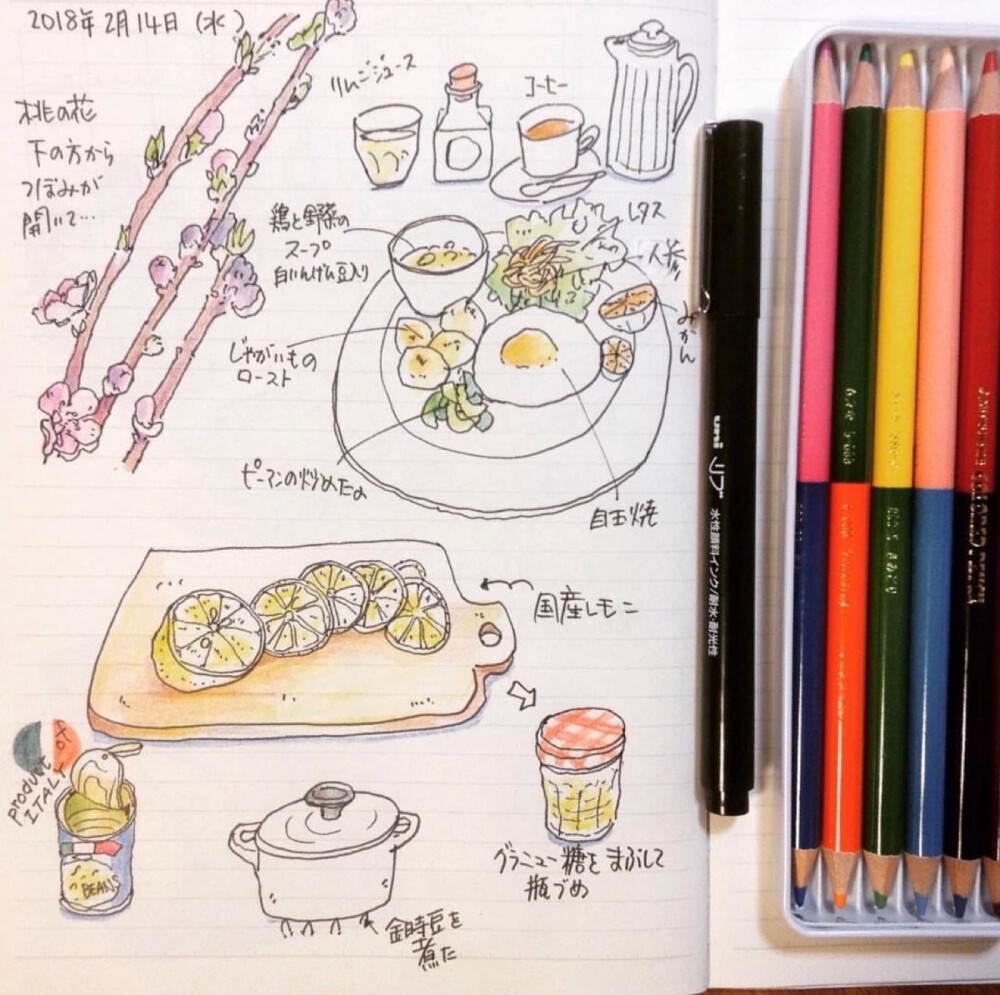 2018年2月14日(水)
桃の花
下の方から
つぼみが
開いて…
りんごジュース
コーヒー
鶏と野菜の
スープ
白いんげん豆入り
レタス
人参
みかん
じゃがいもの
ロースト
ピーマンの炒めたの
目玉焼
国産レモン
product of
ITALY
BEANS
グラニュー糖をまぶして
瓶づめ
金時豆を
煮た
uni リブ 水性顔料インク/耐水・耐光性